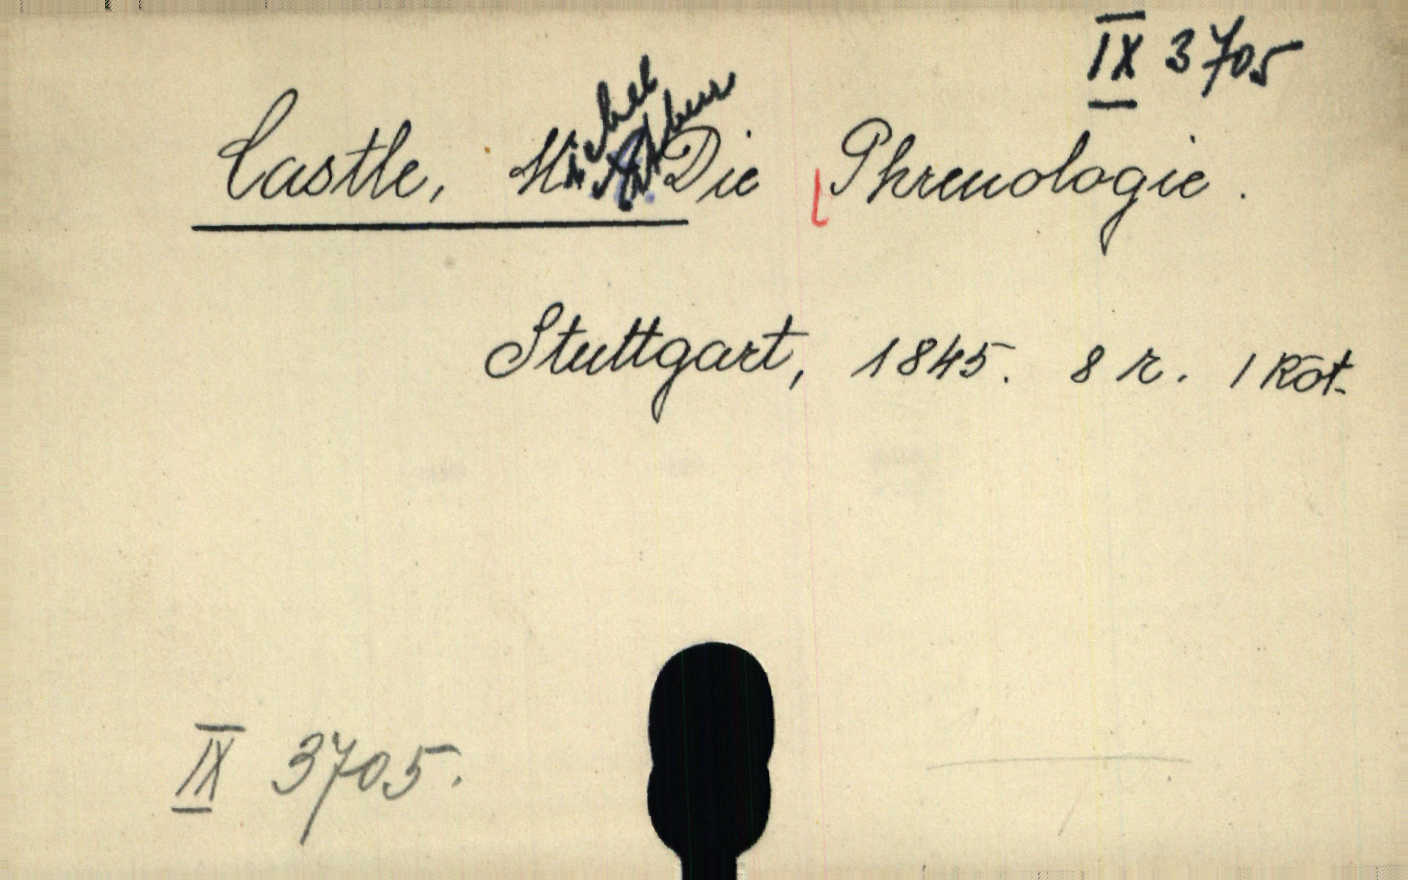 IX 3705
Castle, Michel Arthur Die Phrenologie.
Stuttgart, 1845. 8 r. 1 Köt.
IX 3705.